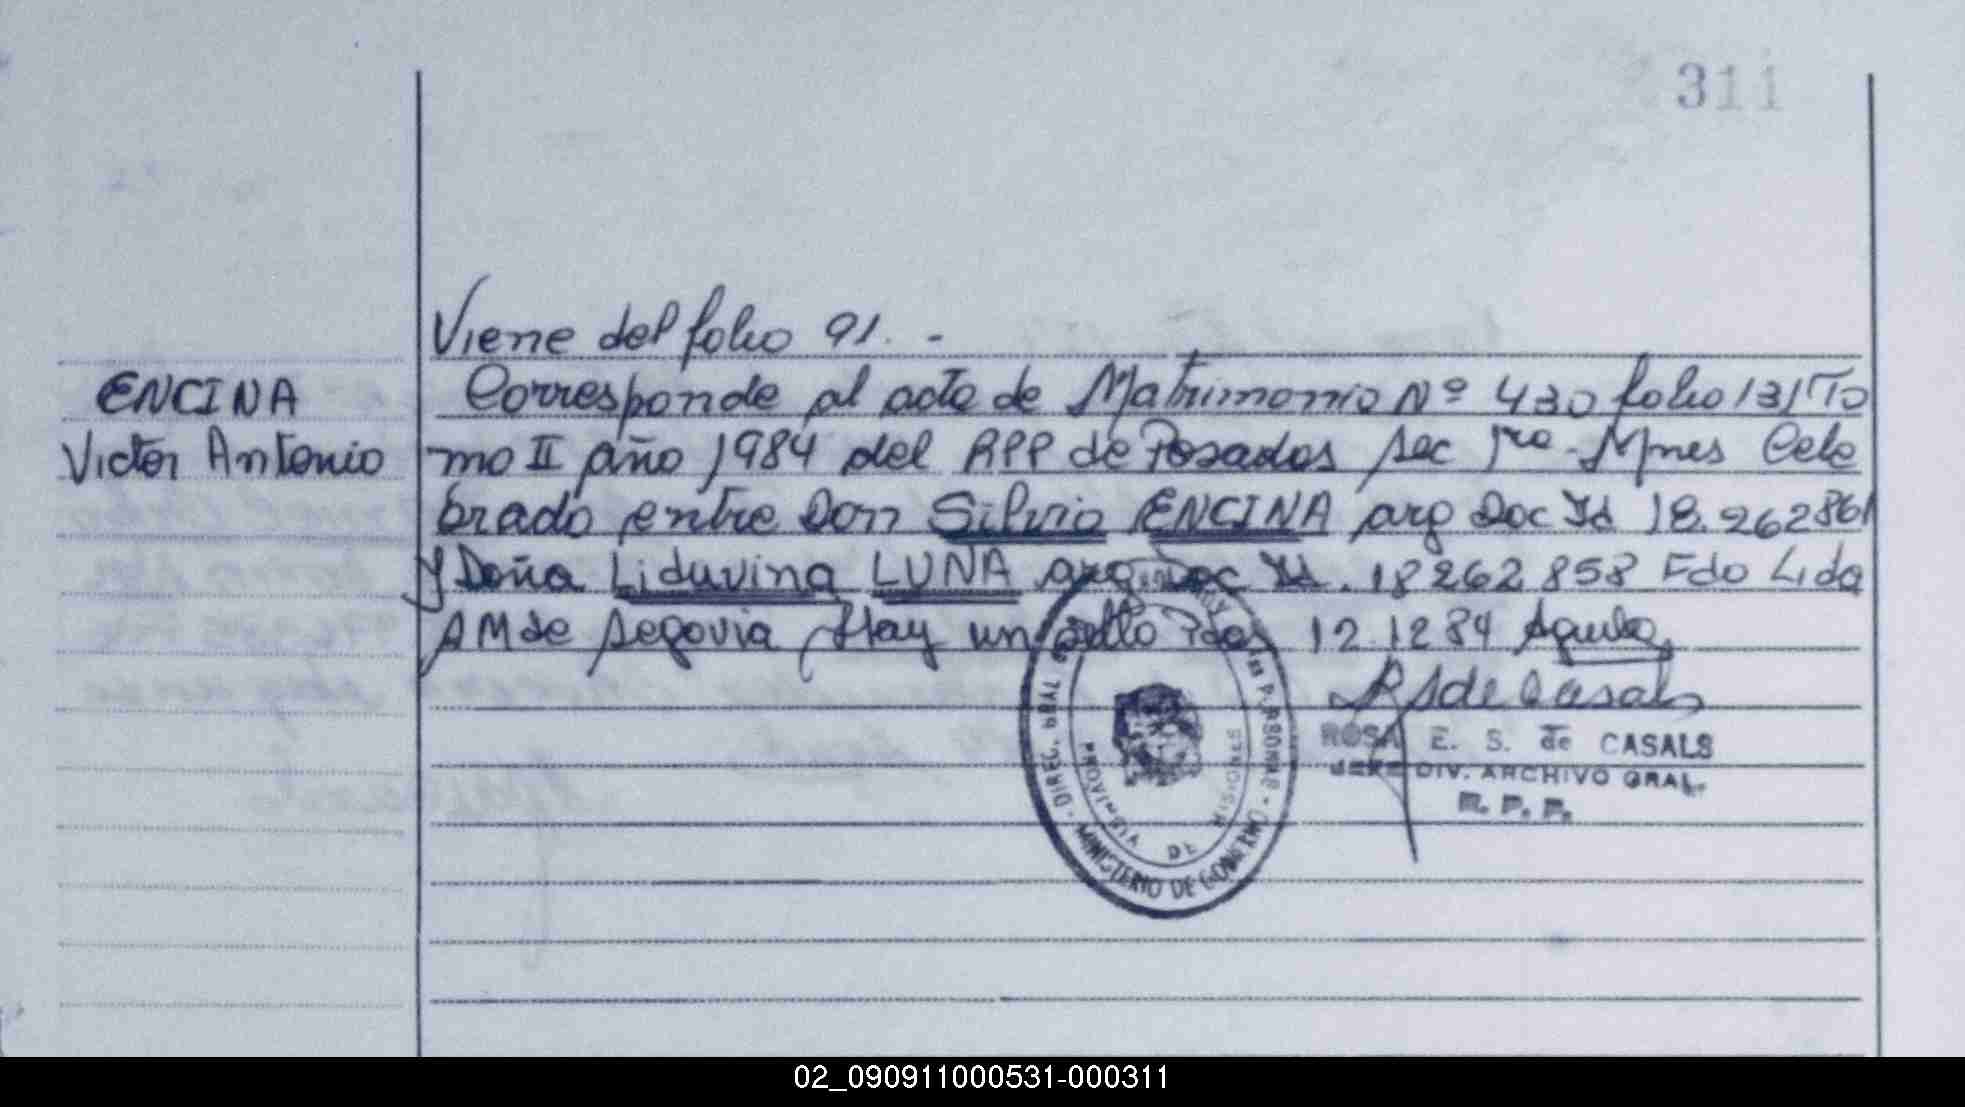 311
Viene del folio 91. -
ENCINA
Victor Antonio
Corresponde al acta de Matrimonio Nº 430 folio 131 To
mo II año 1984 del RPP de Posadas Sec 1ra - Mnes Cele
brado entre Don Silvio ENCINA arg Doc Id 18.262861
y Doña Liduvina LUNA arg Doc Id. 18262858 Fdo Lida
AM de Segovia Hay un sello Pdas 12 1284
RS de Casals
ROSA E. S. de CASALS
JEFE DIV. ARCHIVO GRAL.
R. P. P.
DIREC. GRAL
PERSONAS
MINISTERIO DE GOBIERNO
PROVINCIA DE MISIONES
02_090911000531-000311